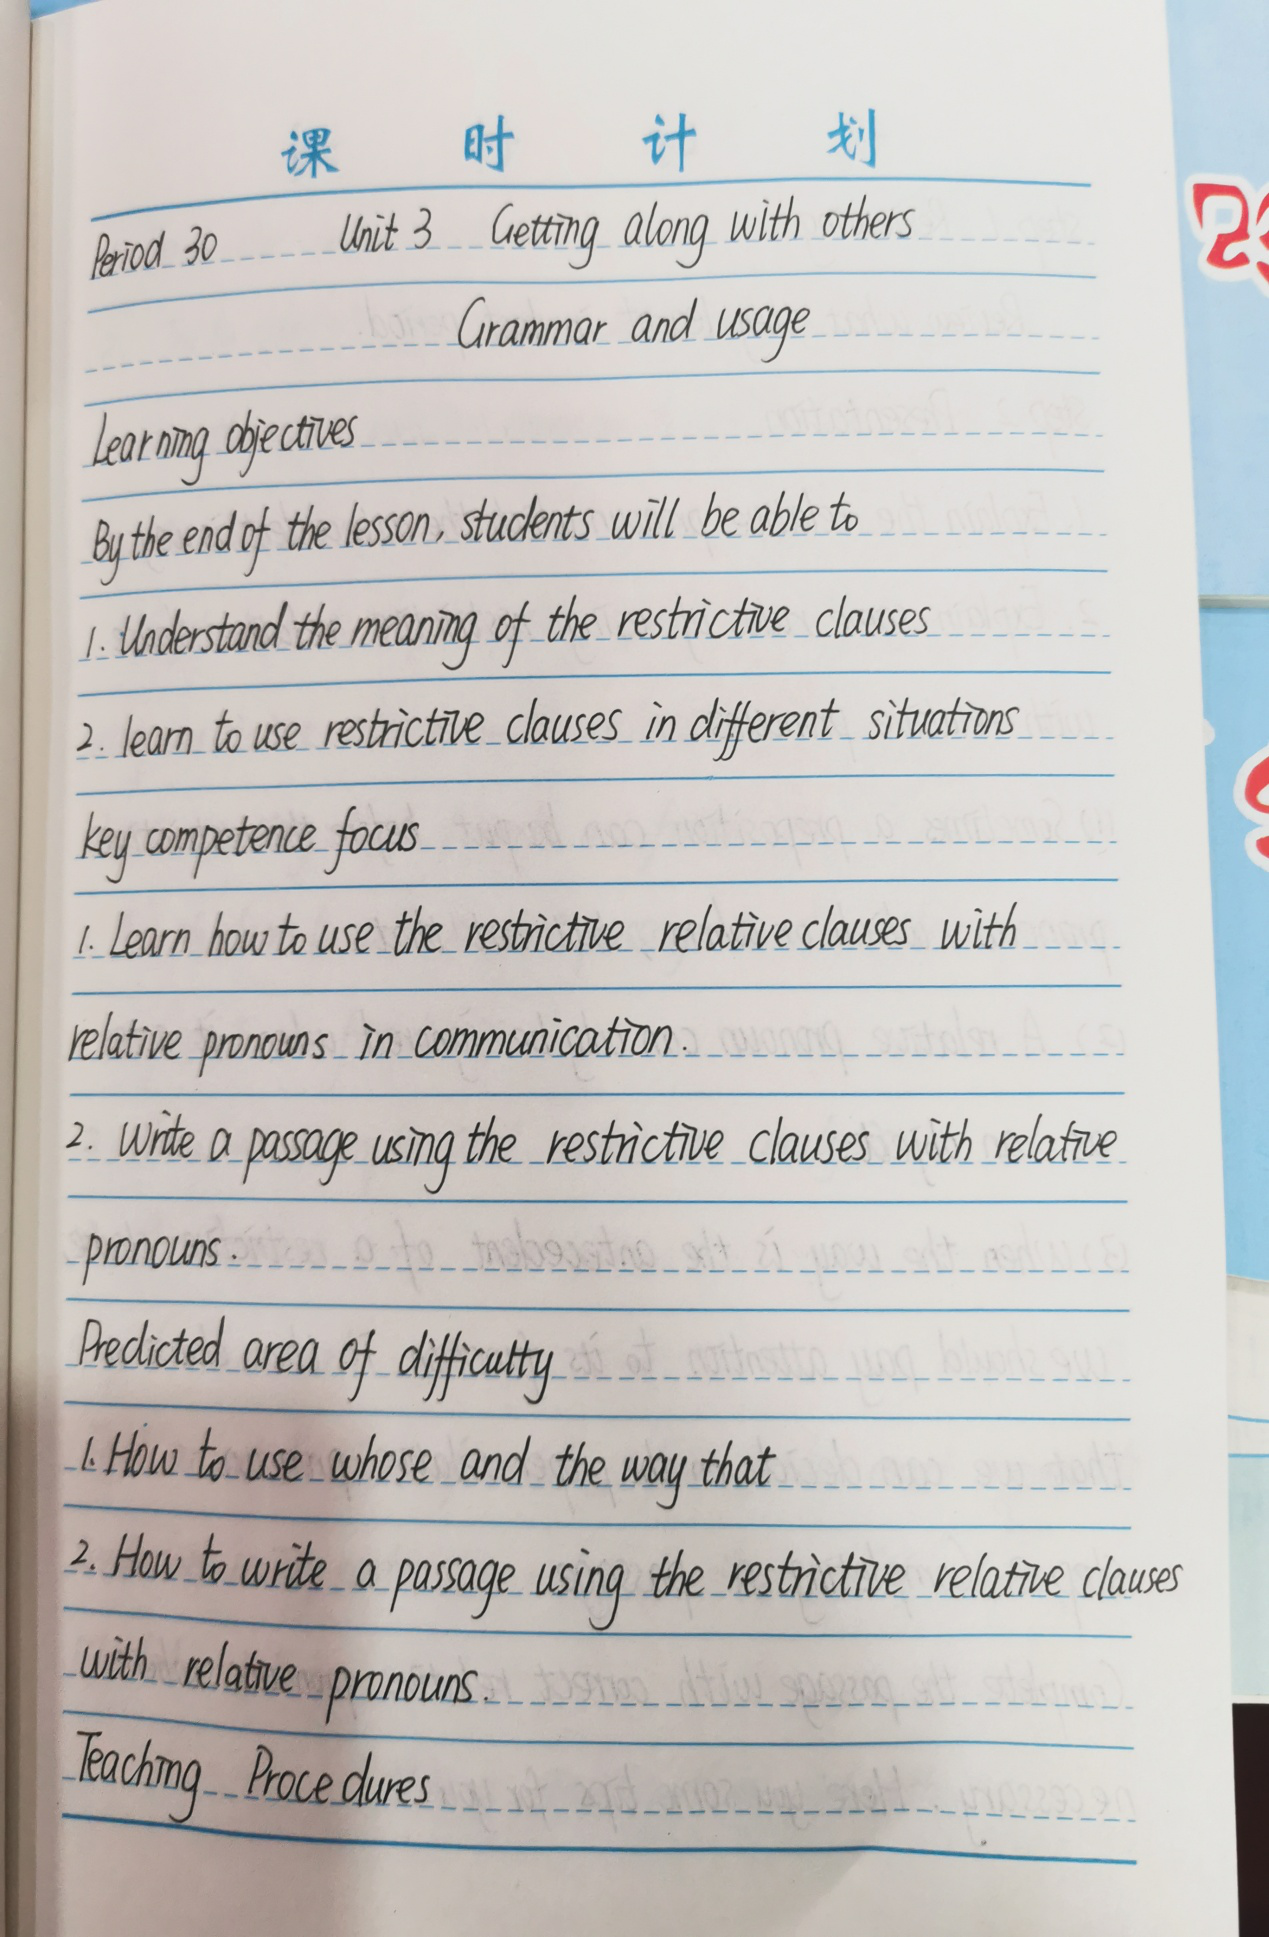 课 时 计 划
Period 30 Unit 3 Getting along with others
Grammar and usage
Learning objectives
By the end of the lesson, students will be able to
1. Understand the meaning of the restrictive clauses
2. learn to use restrictive clauses in different situations
key competence focus
1. Learn how to use the restrictive relative clauses with
relative pronouns in communication.
2. Write a passage using the restrictive clauses with relative
pronouns.
Predicted area of difficulty
1. How to use whose and the way that
2. How to write a passage using the restrictive relative clauses
with relative pronouns.
Teaching Procedures